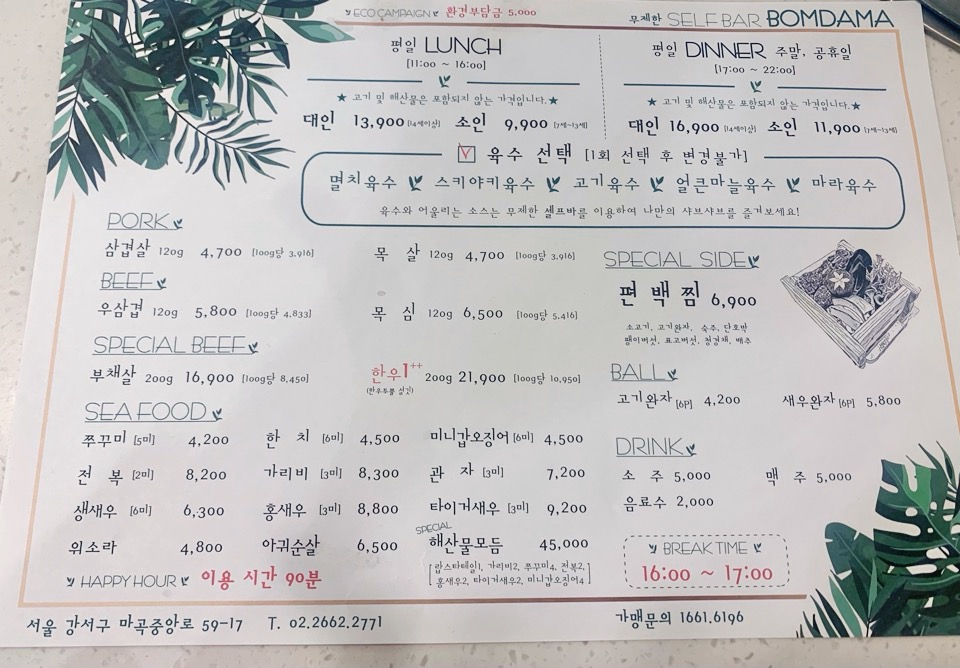 ECO CAMPAIGN 환경부담금 5,000
무제한 SELF BAR BOMDAMA
평일 LUNCH
[11:00 ~ 16:00]
★ 고기 및 해산물은 포함되지 않는 가격입니다.★
대인 13,900 [14세이상] 소인 9,900 [7세~13세]
평일 DINNER 주말, 공휴일
[17:00 ~ 22:00]
★ 고기 및 해산물은 포함되지 않는 가격입니다.★
대인 16,900 [14세이상] 소인 11,900 [7세~13세]
육수 선택 [1회 선택 후 변경불가]
멸치육수 스키야키육수 고기육수 얼큰마늘육수 마라육수
육수와 어울리는 소스는 무제한 셀프바를 이용하여 나만의 샤브샤브를 즐겨보세요!
PORK
삼겹살 120g 4,700 [100g당 3,916] 목 살 120g 4,700 [100g당 3,916]
BEEF
우삼겹 120g 5,800 [100g당 4,833] 목 심 120g 6,500 [100g당 5,416]
SPECIAL BEEF
부채살 200g 16,900 [100g당 8,450] 한우1++ 200g 21,900 [100g당 10,950]
SEA FOOD
쭈꾸미 [5미] 4,200 한 치 [6미] 4,500 미니갑오징어 [6미] 4,500
전 복 [2미] 8,200 가리비 [3미] 8,300 관 자 [3미] 7,200
생새우 [6미] 6,300 홍새우 [3미] 8,800 타이거새우 [3미] 9,200
위소라 4,800 아귀순살 6,500 SPECIAL 해산물모듬 45,000
[랍스타테일1, 가리비2, 쭈꾸미4, 전복2,
홍새우2, 타이거새우2, 미니갑오징어4]
HAPPY HOUR 이용 시간 90분
SPECIAL SIDE
편백찜 6,900
소고기, 고기완자, 숙주, 단호박
팽이버섯, 표고버섯, 청경채, 배추
BALL
고기완자 [6P] 4,200 새우완자 [6P] 5,800
DRINK
소 주 5,000 맥 주 5,000
음료수 2,000
BREAK TIME
16:00 ~ 17:00
서울 강서구 마곡중앙로 59-17 T. 02.2662.2771
가맹문의 1661.6196